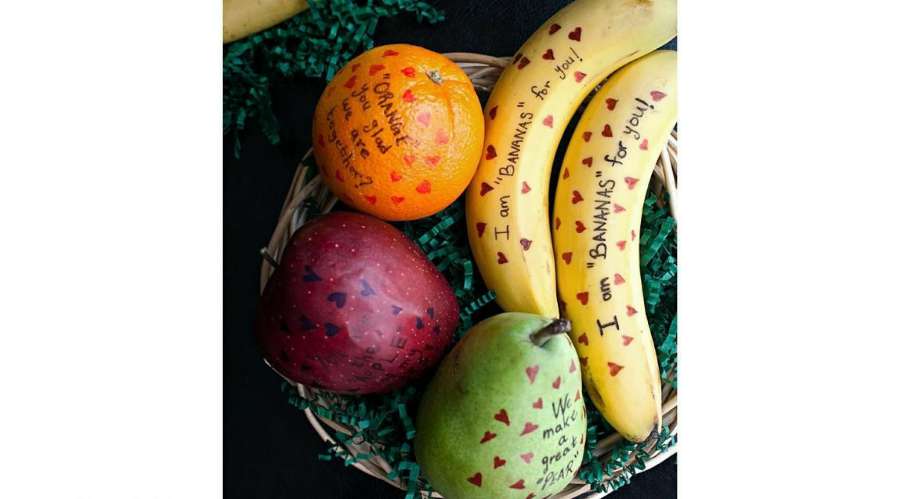 "ORANGE"
you glad
we are
together?
I am "BANANAS" for you!
I am "BANANAS" for you!
We
make
a
great
"PEAR"